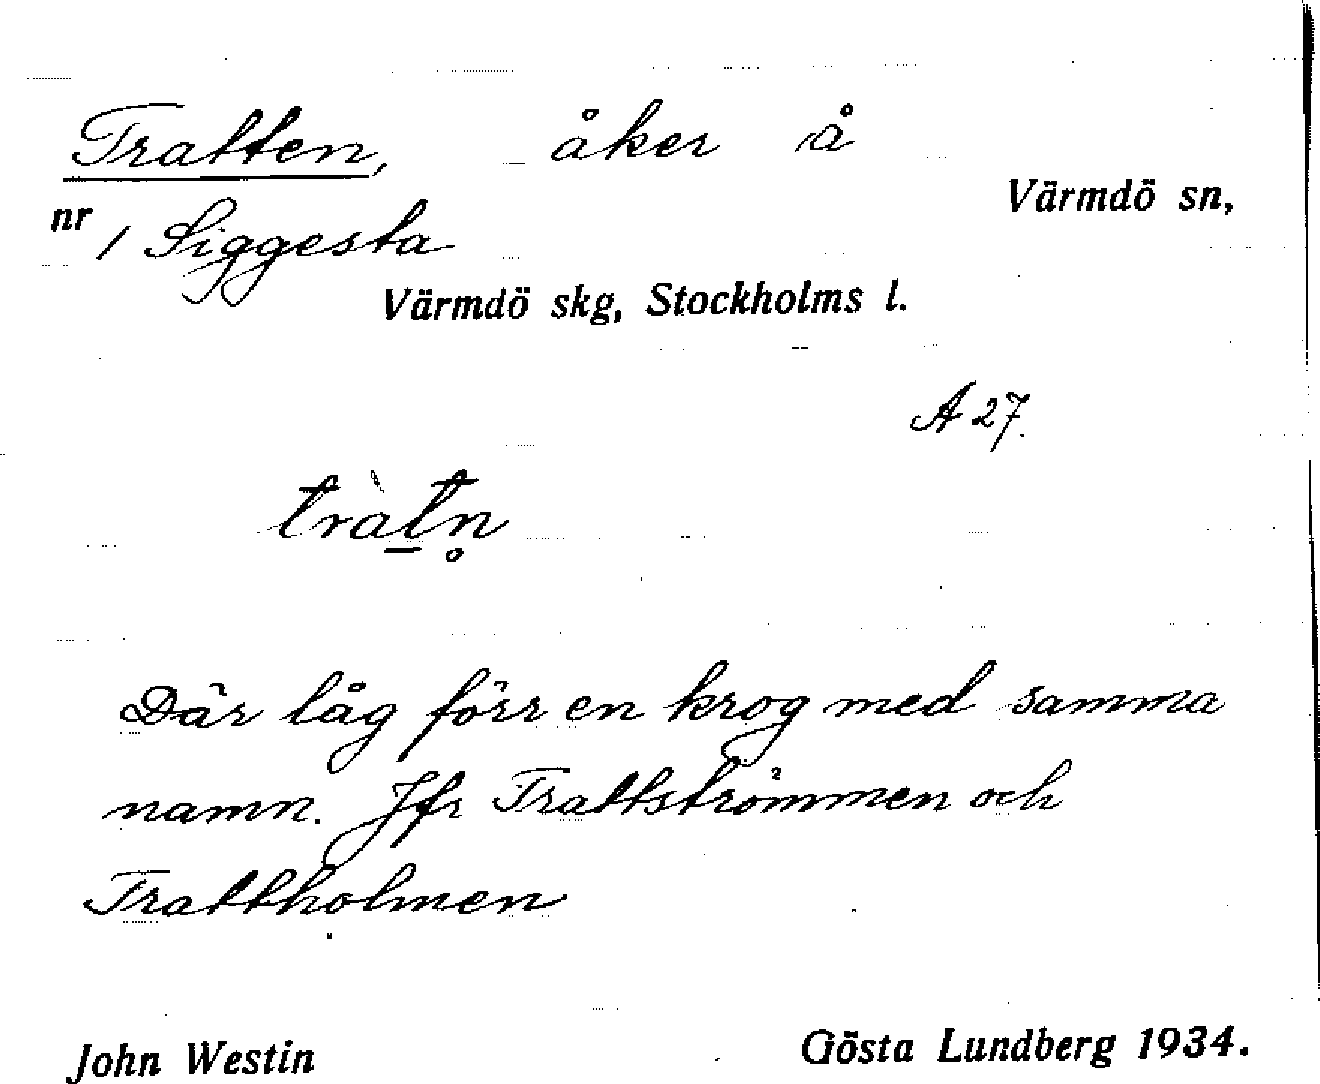 Tratten, åker å
Värmdö sn,
nr 1 Siggesta
Värmdö skg, Stockholms l.
A 27.
tràt̠n̥
Där låg förr en krog med samma
namn. Jfr Trattströmmen och
Trattholmen
John Westin
Gösta Lundberg 1934.